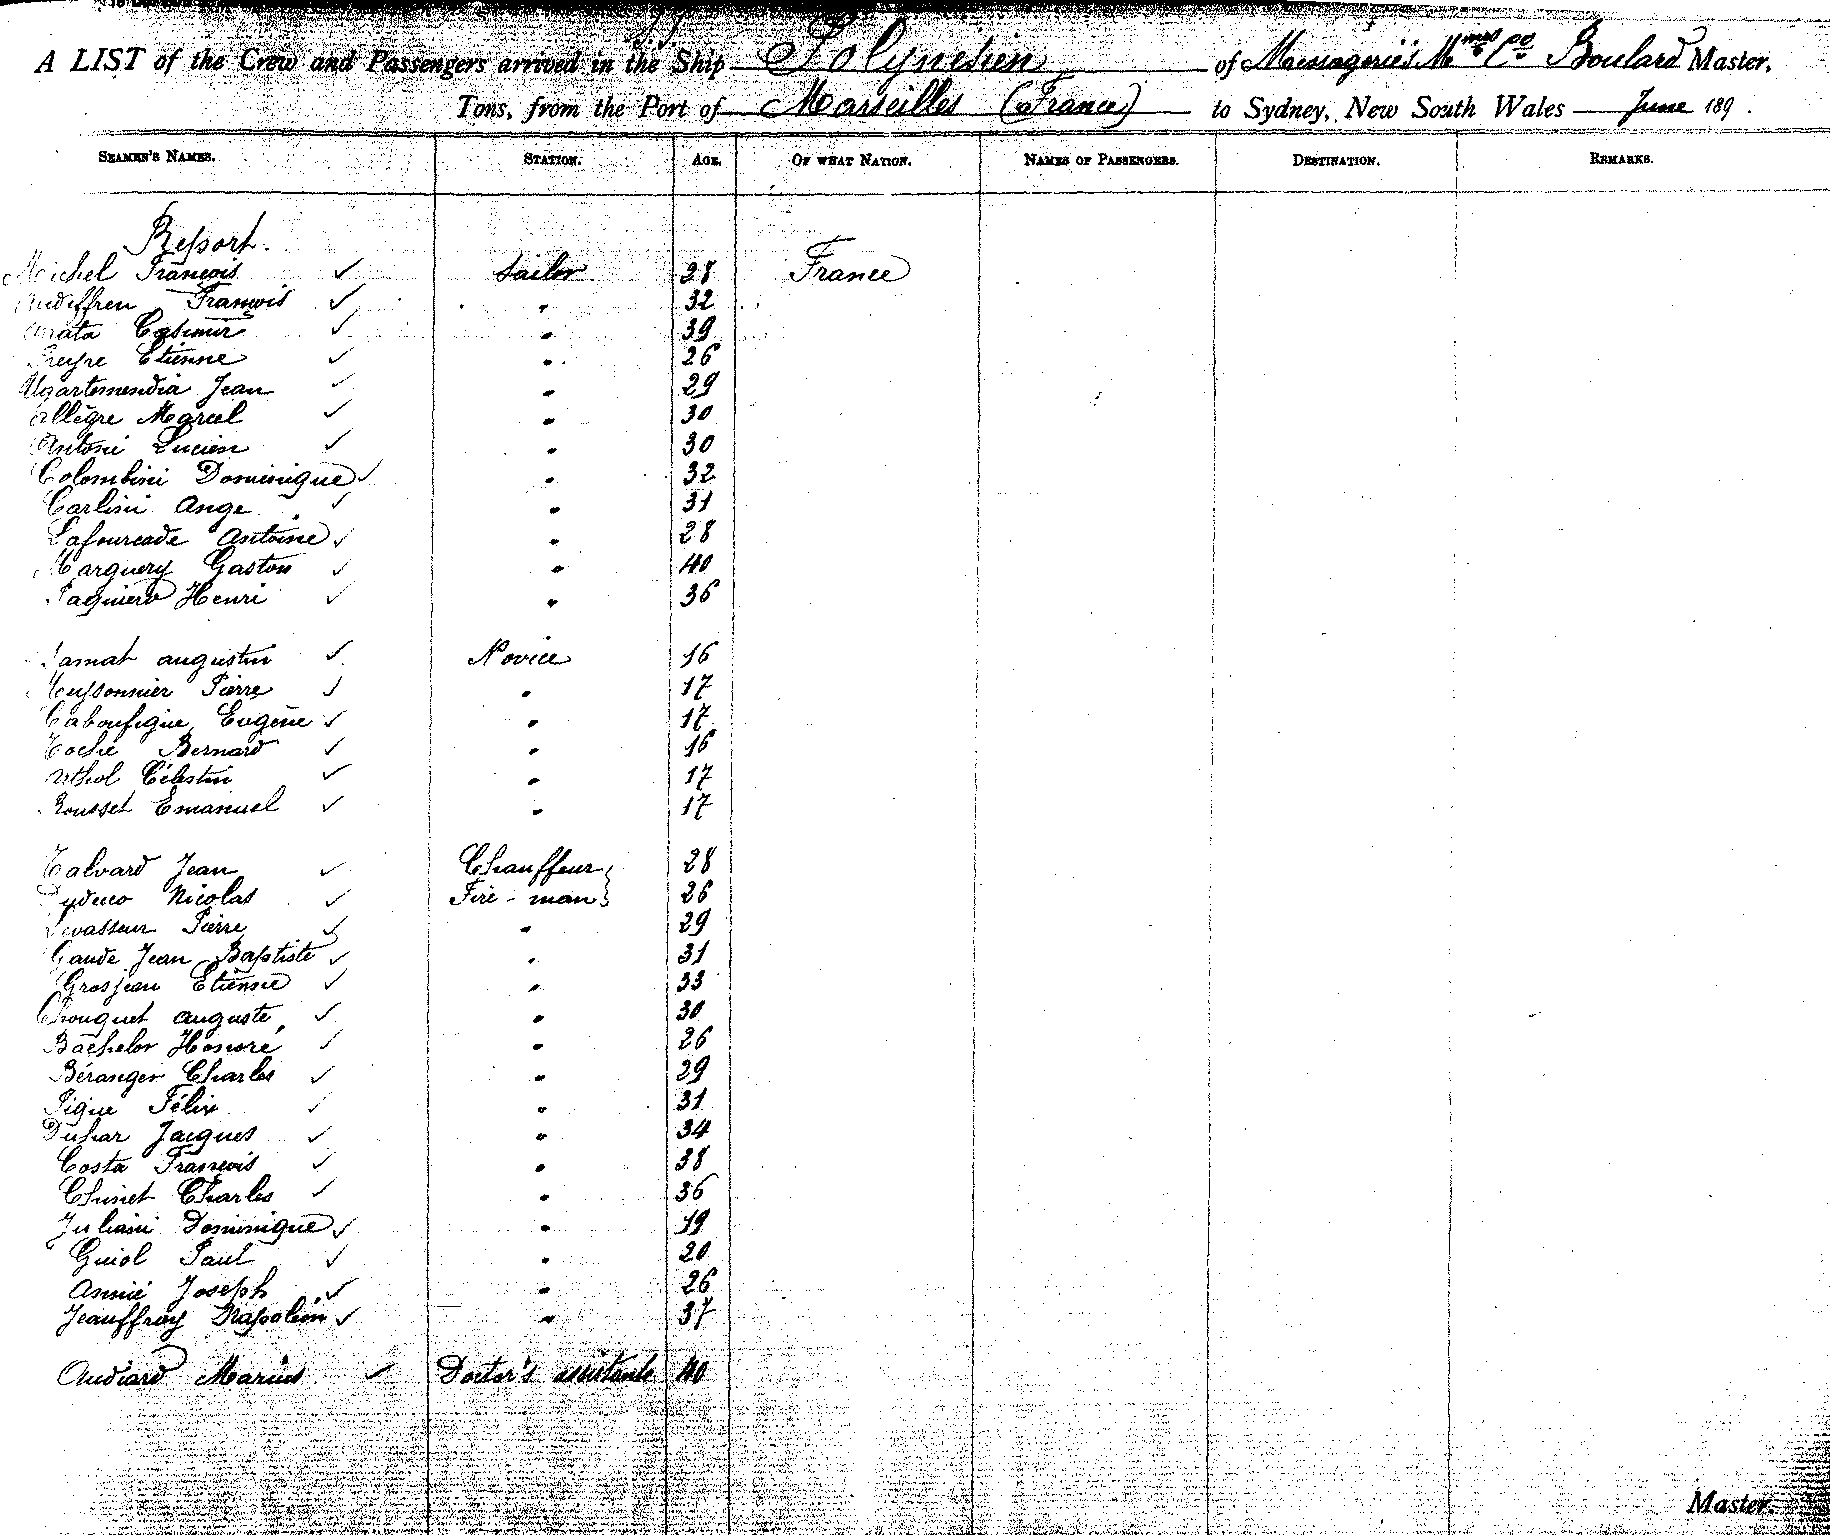 A LIST of the Crew and Passengers arrived in the Ship Polynesien of Messageries Mmes Co Boulard Master,
Tons, from the Port of Marseilles (France) to Sydney, New South Wales June 189 .
SEAMEN'S NAMES. STATION. AGE. OF WHAT NATION. NAMES OF PASSENGERS. DESTINATION. REMARKS.
Report.
Michel François ✓ Sailor 28 France
Audiffren François ✓ " 32
Casimir ✓ " 39
Etienne ✓ " 26
Ugartemendia Jean ✓ " 29
Allègre Marcel ✓ " 30
Antoni Lucien ✓ " 30
Colombini Dominique ✓ " 32
Carlini Ange ✓ " 31
Lafourcade Antoine ✓ " 28
Marguery Gaston ✓ " 40
Henri ✓ " 36
augustin ✓ Novice 16
Meyssonnier Pierre ✓ " 17
Caboufigue Eugène ✓ " 17
Toché Bernard ✓ " 16
Célestin ✓ " 17
Rousset Emanuel ✓ " 17
Talvard Jean ✓ Chauffeur 28
Nicolas ✓ Fire-man 26
Levasseur Pierre ✓ " 29
Gaude Jean Baptiste ✓ " 31
Grosjean Etienne ✓ " 33
Chouquet auguste ✓ " 30
Bachelor Honoré ✓ " 26
Béranger Charles ✓ " 29
Pigue Félix ✓ " 31
Duhar Jacques ✓ " 34
Costa François ✓ " 38
Chinet Charles ✓ " 36
Juliani Dominique ✓ " 19
Guiol Paul ✓ " 20
Annié Joseph ✓ " 26
Jeauffroy Napoléon ✓ " 37
Audiard Marius ✓ Doctor's assistante 40
Master.